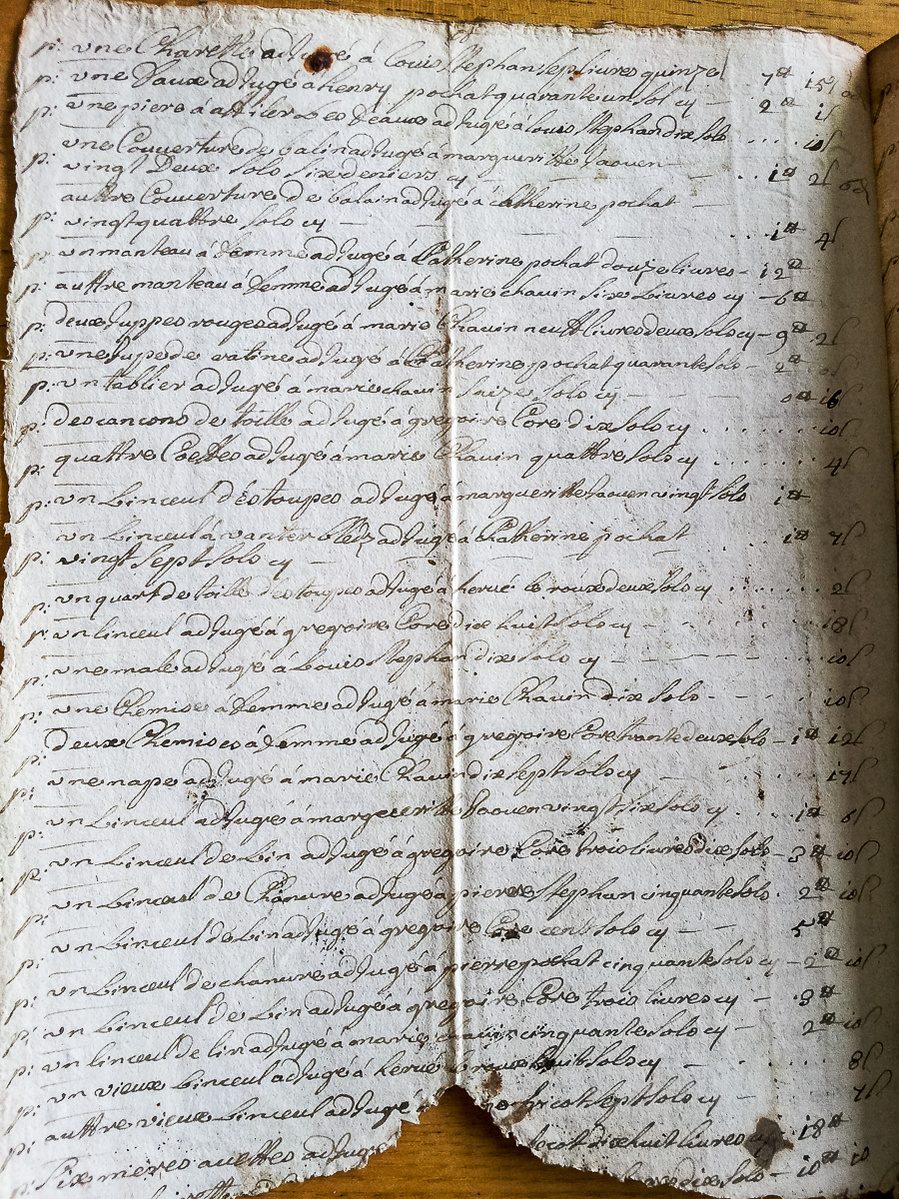 p: une Charette adjugé á Louis Stephan sept livres quinze s 7# 15s
p: une adjugé á henry pochat quarante un sol cy — 2# 1s
p: une piere á affiler Les adjugé á louis Stephan dix solo .... 10s
p: une Couverture de balin adjugé á margueritte Saouen
vingt Deux solo six deniers cy — — .. 1# 2s 6d
p: auttre Couverture de balain adjugé á Catherine pochat
vingt quattre solo cy — — — ... 1# 4s
p: un manteau á femme adjugé á Catherine pochat douze livres - 12#
p: auttre manteau á femme adjugé á marie chauin six Livres cy - 6#
p: deux juppes rouges adjugé á marie Chauin neuff livres deux solo cy - 9# 2s
p: une jupe de ratine adjugé á Catherine pochat quarante solo - 2# 0s
p: un tablier adjugé á marie chauin saize solo cy — — 0# 16s
p: des cancons de toille adjugé á gregoire Core dix solo cy ...... 10s
p: quattre Coeffes adjugé á marie Chauin quattre solo cy ...... 4s
p: un Linceul d'éstoupes adjugé á margueritte Saouen vingt solo 1#
p: un Linceul á vanter bled adjugé á Catherine pochat .. 1# 7s
vingt sept solo cy — — —
p: un quart de toille d'éstoupes adjugé á hervé le roux deux solo cy ...... 2s
p: un linceul adjugé á gregoire Core dix huit solo cy — ... 18s
p: une male adjugé á Louis Stephan dix solo cy — — — .. 10s
p: une Chemise á femme adjugé á marie Chauin dix solo - - .. 10s
p: deux Chemises á femme adjugé á gregoire Core trante deux solo - 1# 12s
p: une nape adjugé á marie Chauin dix sept solo cy — .... 17s
p: un Linceul adjugé á margueritte Saouen vingt six solo cy .. 1# 6s
p: un Linceul de Lin adjugé á gregoire Core trois livres dix solo - 3# 10s
p: un Linceul de Chanure adjugé á pierre Stephan cinquante solo . 2# 10s
p: un Linceul de Lin adjugé á gregoire Core cent solo cy — — 5#
p: un Linceul de chanure adjugé á pierre pochat cinquante solo cy - 2# 10s
p: un Linceul de Lin adjugé á gregoire Core trois livres cy — 3#
p: un linceul de lin adjugé á marie chauin cinquante solo cy — 2# 10s
p: un vieux Linceul adjugé á hervé le roux huit solo cy — .. 8s
p: auttre vieux Linceul adjugé á bricot sept solo cy — 7s
p: Six meres auettes adjugé dix huit livres cy 18#
dix solo - 10# 10